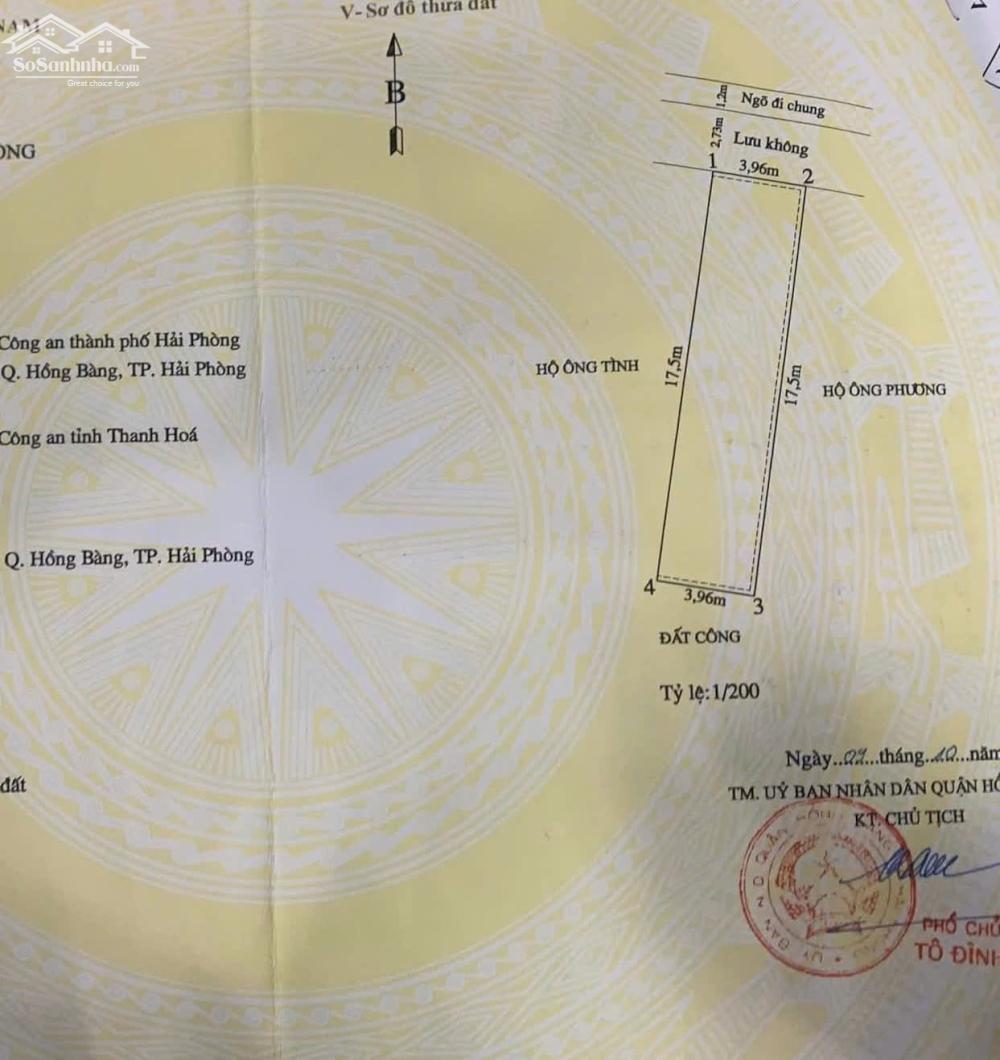 NAM
SoSanhnha.com
Great choice for you
V- Sơ đồ thửa đất
B
Ngõ đi chung
1,2m
Lưu không
2,73m
1
3,96m
2
ÒNG
Công an thành phố Hải Phòng
Q. Hồng Bàng, TP. Hải Phòng
HỘ ÔNG TÌNH
17,5m
17,5m
HỘ ÔNG PHƯƠNG
Công an tỉnh Thanh Hoá
Q. Hồng Bàng, TP. Hải Phòng
4
3,96m
3
ĐẤT CÔNG
Tỷ lệ:1/200
đất
Ngày.. ...tháng..10...năm
TM. UỶ BAN NHÂN DÂN QUẬN HỒ
KT. CHỦ TỊCH
PHÓ CHỦ
TÔ ĐÌNH